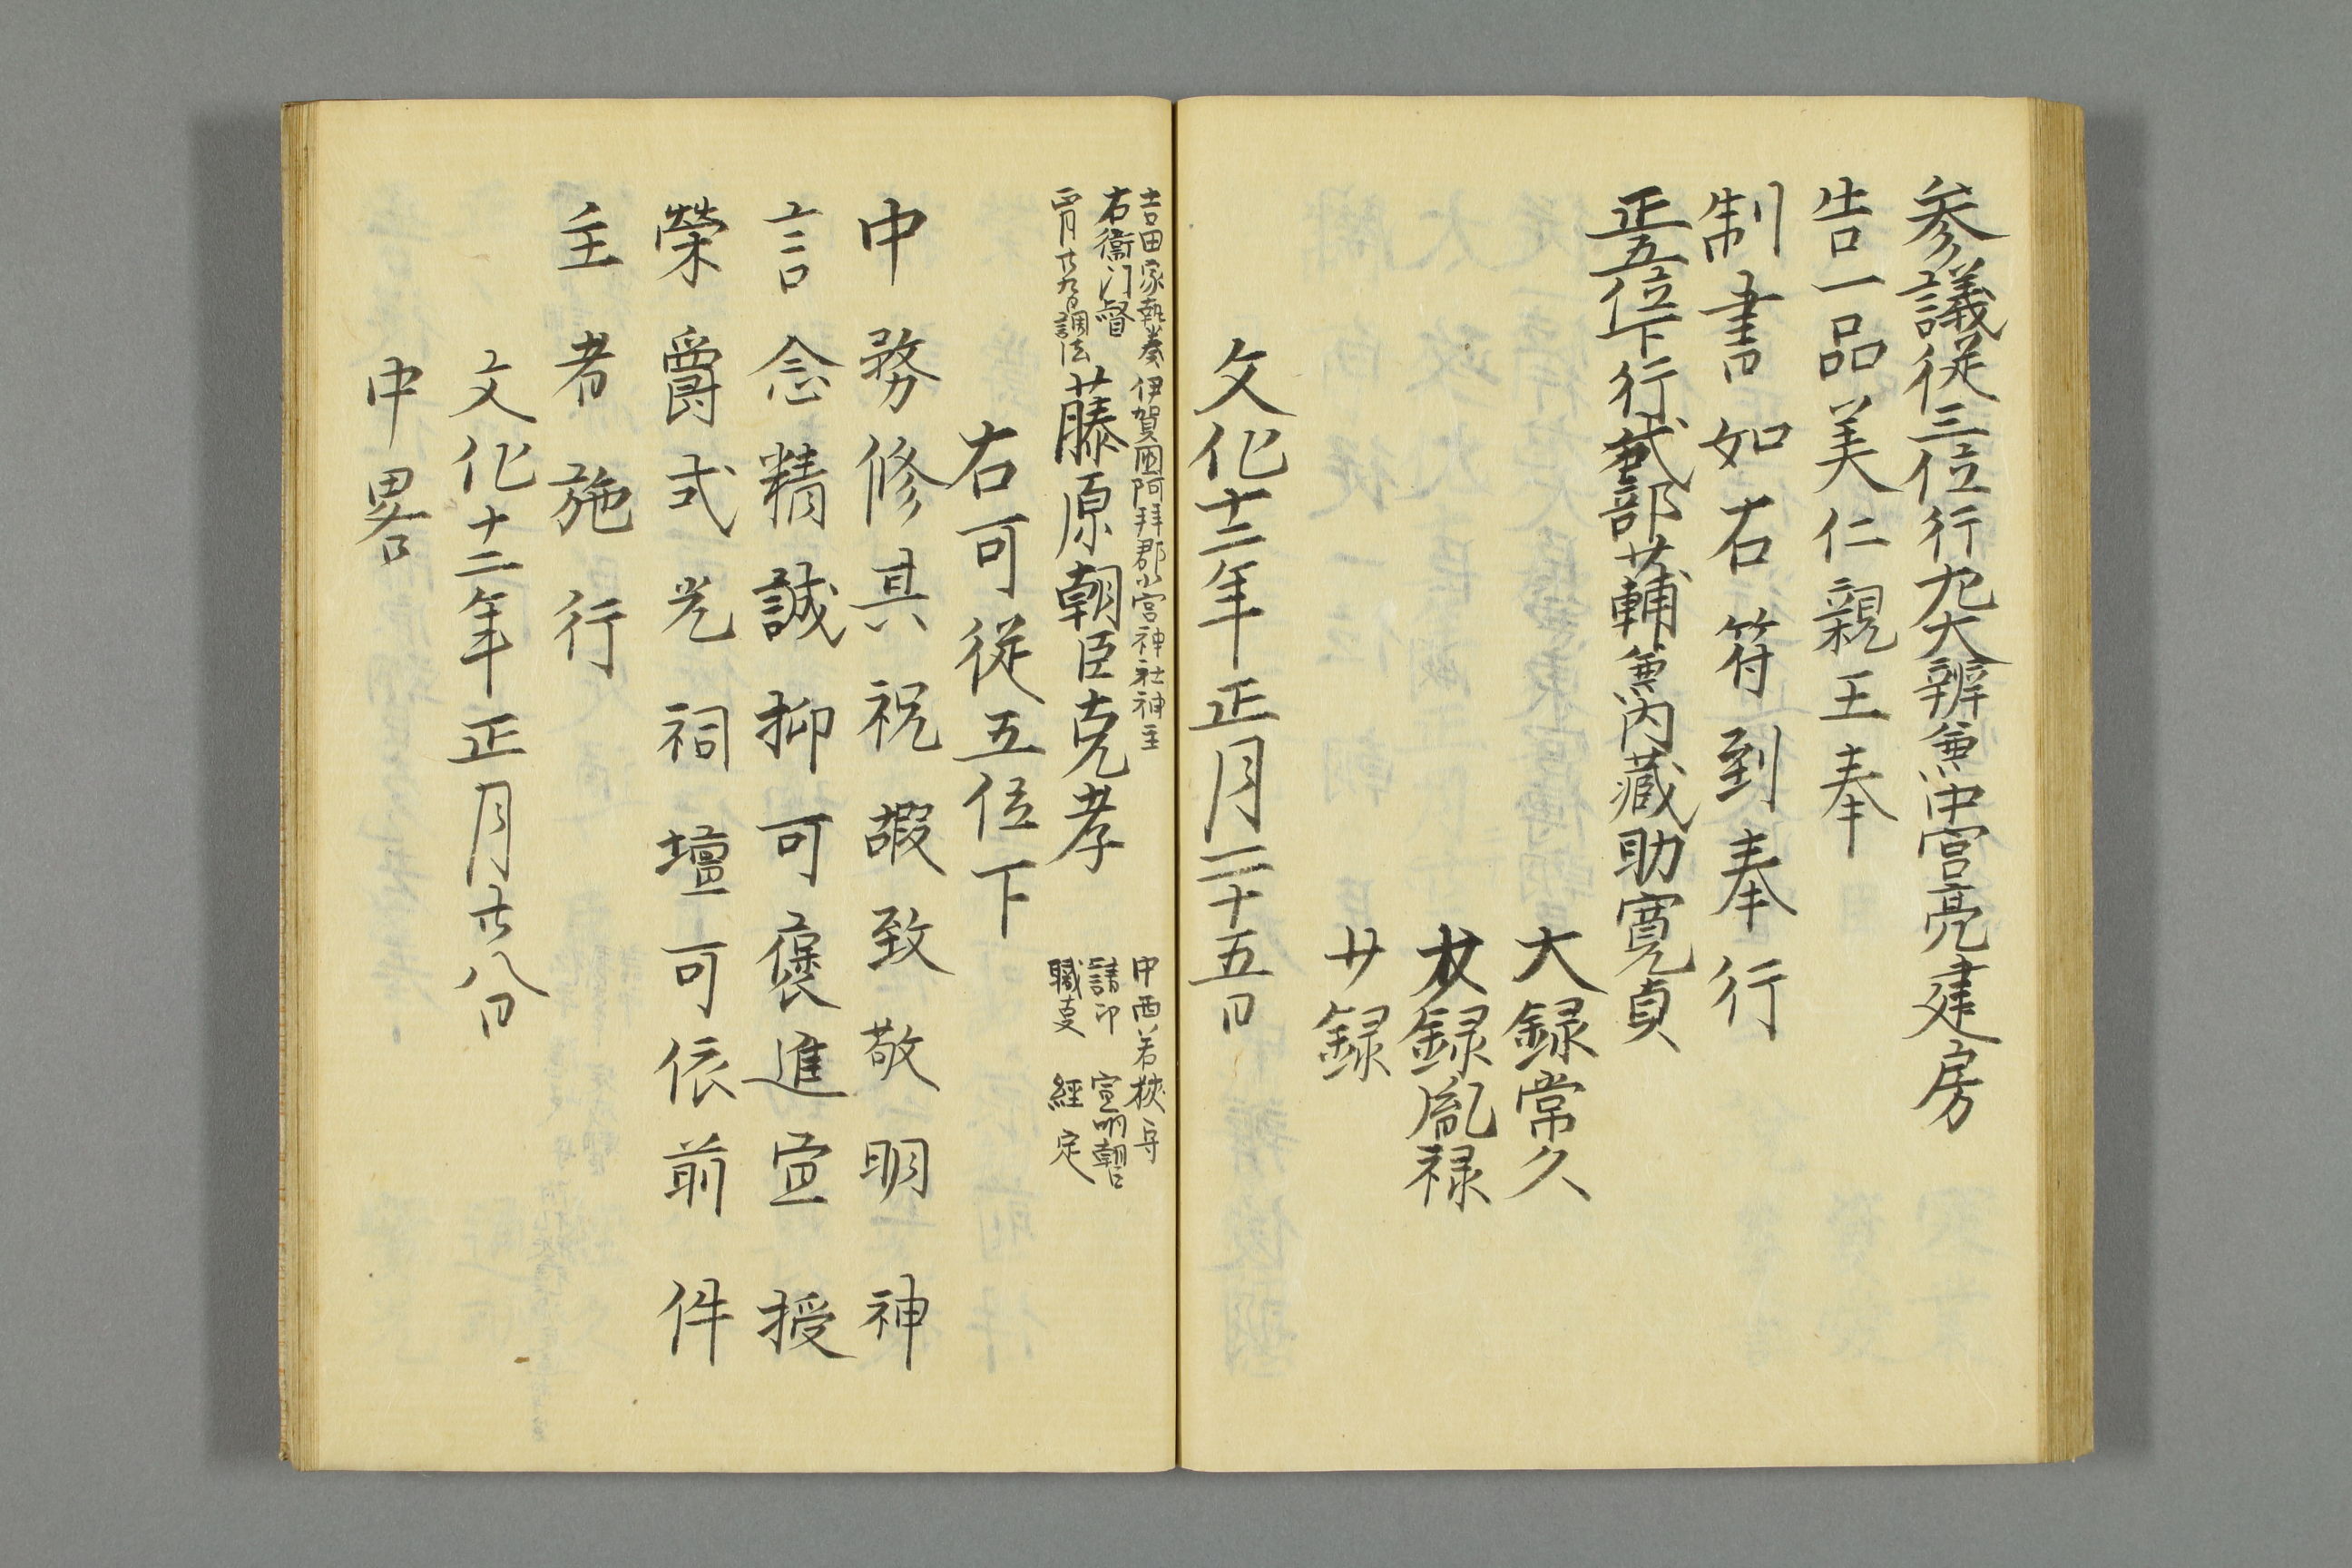 参議従三位行左大辨兼中宮亮建房
告一品美仁親王奉
制書如右符到奉行
正五位下行式部少輔兼内蔵助寛貞
大録常久
少録胤禄
少録
文化十二年正月二十五日
吉田家執奏 伊賀国阿拝郡小宮神社神主
右衛门督
正月廿九日調法
藤原朝臣克孝
中西若狭守
請印 宣明朝臣
職事 經定
右可従五位下
中務修其祝嘏致敬明神
言念精誠抑可褒進宜授
榮爵式光祠壇可依前件
主者施行
文化十二年正月廿八日
中畧